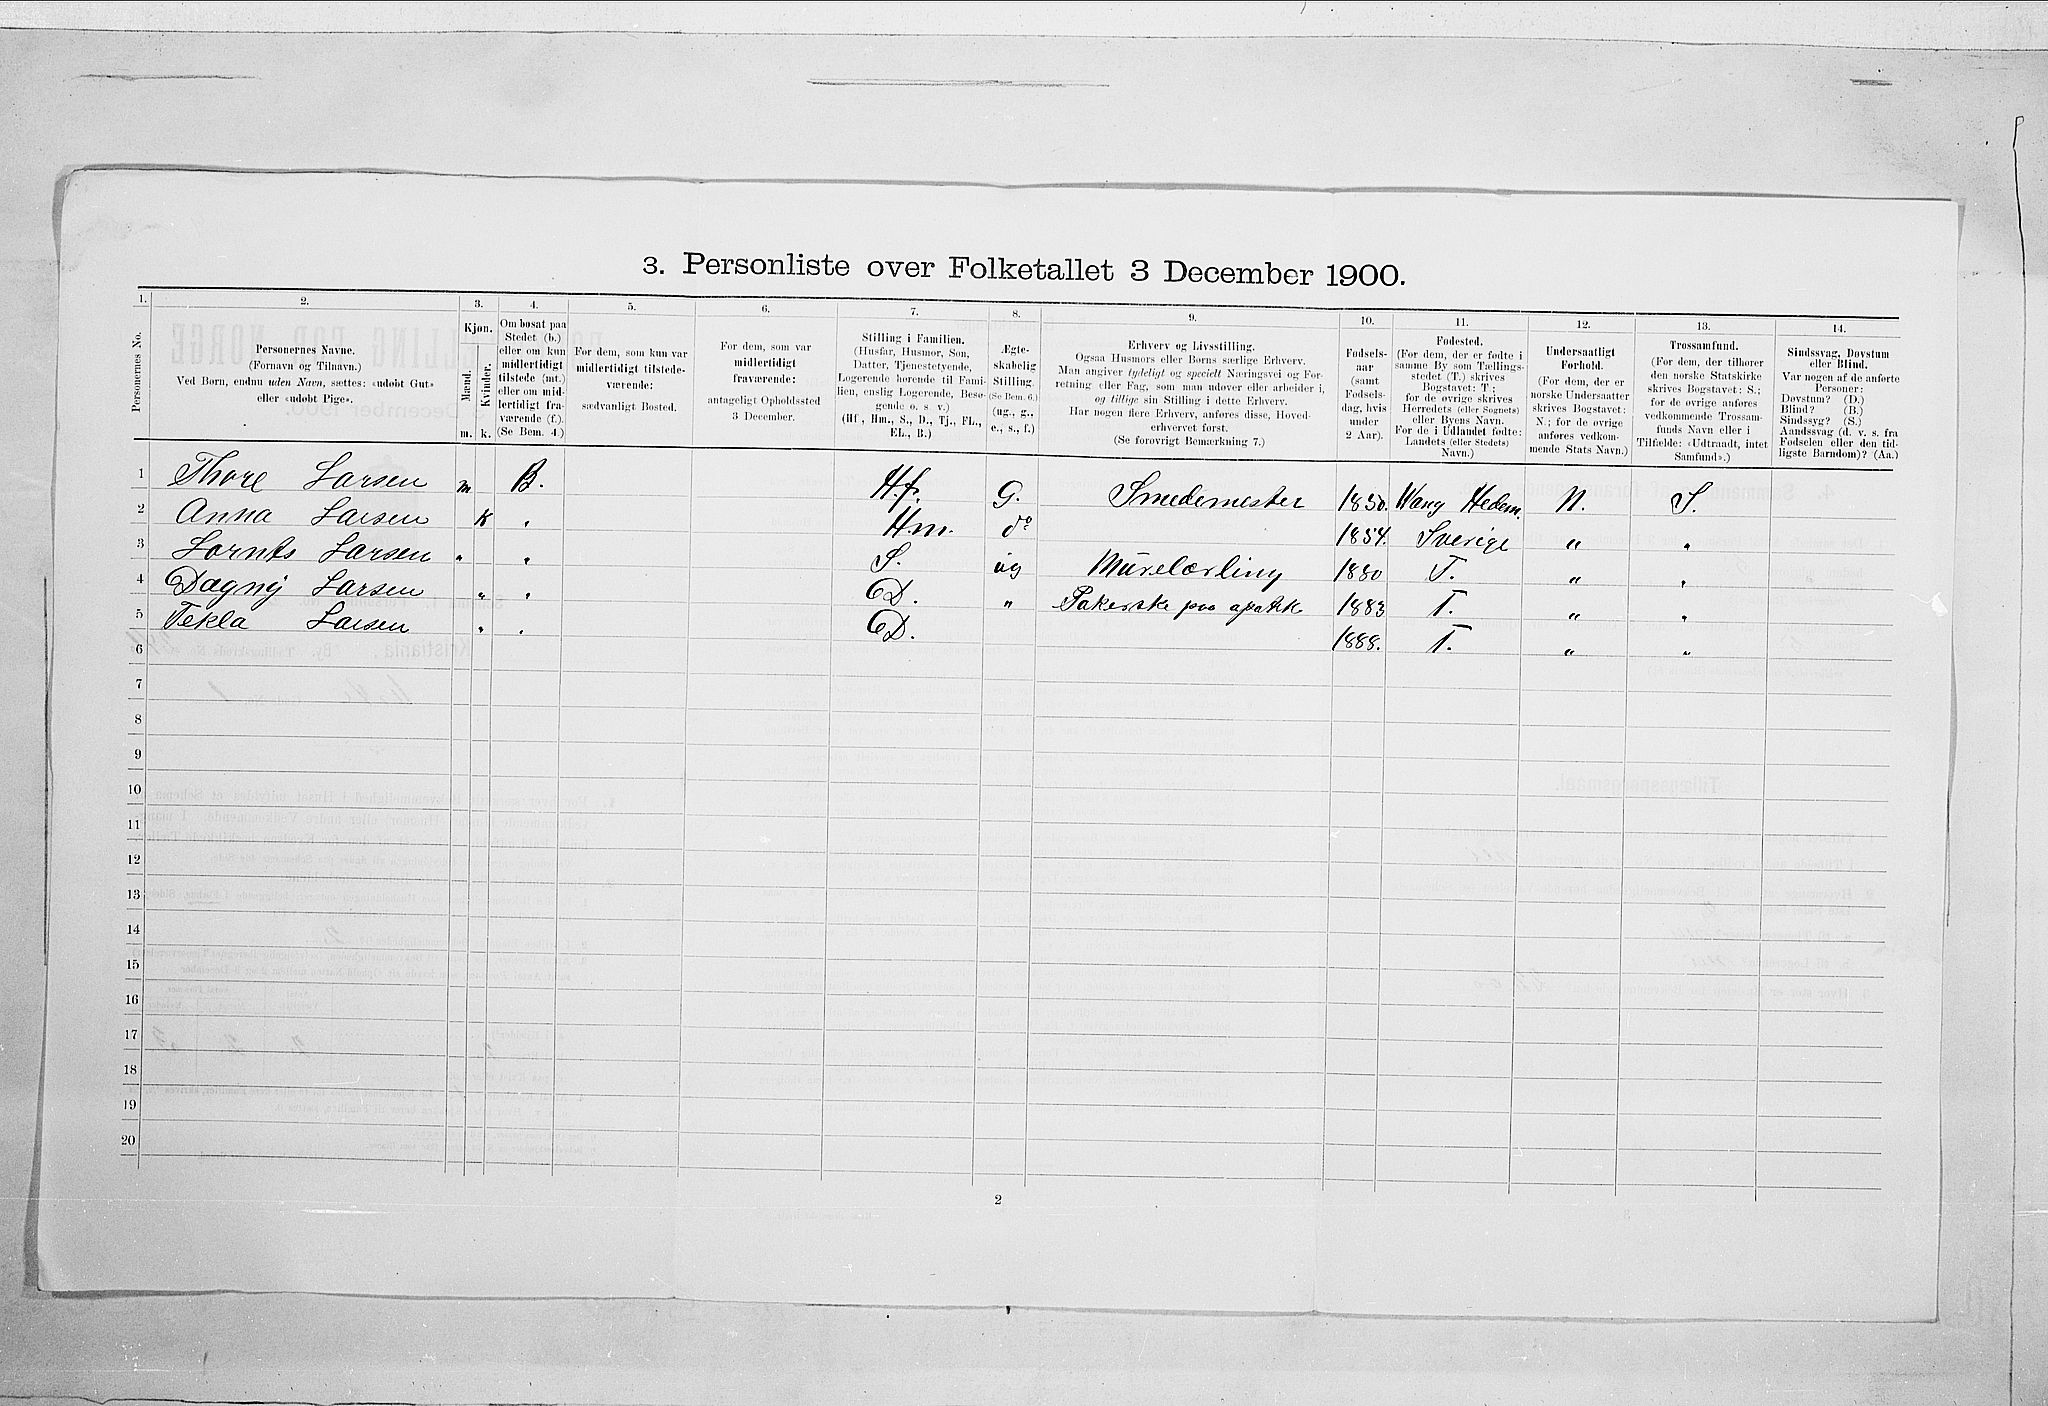 3. Personliste over Folketallet 3 December 1900.
1. 2. 3. 4. 5. 6. 7. 8. 9. 10. 11. 12. 13. 14.
Personernes No.
Personernes Navne.
(Fornavn og Tilnavn.)
Ved Børn, endnu uden Navn, sættes: «udøbt Gut»
eller «udøbt Pige».
Kjøn.
Mænd.
Kvinder.
m. k.
Om bosat paa
Stedet (b.)
eller om kun
midlertidigt
tilstede (mt.)
eller om mid-
lertidigt fra-
værende (f.).
(Se Bem. 4.)
For dem, som kun var
midlertidigt tilstede-
værende:
sædvanligt Bosted.
For dem, som var
midlertidigt
fraværende:
antageligt Opholdssted
3 December.
Stilling i Familien.
(Husfar, Husmor, Søn,
Datter, Tjenestetyende,
Logerende hørende til Fami-
lien, enslig Logerende, Besø-
gende o. s. v.)
(Hf, Hm., S., D., Tj., FL.,
EL., B.)
Ægte-
skabelig
Stilling.
(Se Bem. 6.)
(ug., g.,
e., s., f.)
Erhverv og Livsstilling.
Ogsaa Husmors eller Børns særlige Erhverv.
Man angiver tydeligt og specielt Næringsvei og For-
retning eller Fag, som man udøver eller arbeider i,
og tillige sin Stilling i dette Erhverv.
Har nogen flere Erhverv, anføres disse, Hoved-
erhvervet først.
(Se forøvrigt Bemærkning 7.)
Fødsels-
aar
(samt
Fødsels-
dag, hvis
under
2 Aar).
Fødested.
(For dem, der er fødte i
samme By som Tællings-
stedet (T.) skrives
Bogstavet: T.;
for de øvrige skrives
Herredets (eller Sognets)
eller Byens Navn.
For de i Udlandet fødte:
Landets (eller Stedets)
Navn.)
Undersaatligt
Forhold.
(For dem, der er
norske Undersaatter
skrives Bogstavet:
N.; for de øvrige
anføres vedkom-
mende Stats Navn.)
Trossamfund.
(For dem, der tilhører
den norske Statskirke
skrives Bogstavet: S.;
for de øvrige anføres
vedkommende Trossam-
funds Navn eller i
Tilfælde: «Udtraadt, intet
Samfund».)
Sindssvag, Døvstum
eller Blind.
Var nogen af de anførte
Personer:
Døvstum? (D.)
Blind? (B.)
Sindssyg? (S.)
Aandssvag (d. v. s. fra
Fødselen eller den tid-
ligste Barndom)? (Aa.)
1 Thore Larsen m B. H.f. G. Smedemester 1850. Wang Hedem. N. S.
2 Anna Larsen K " H.m. do 1854. Sverige " "
3 Lornts Larsen " " S. ug Murelærling 1880 T. " "
4 Dagny Larsen " " D. " Pakerske paa apothk 1883 T. " "
5 Tekla Larsen " " D. 1888. T. " "
6
7
8
9
10
11
12
13
14
15
16
17
18
19
20
2